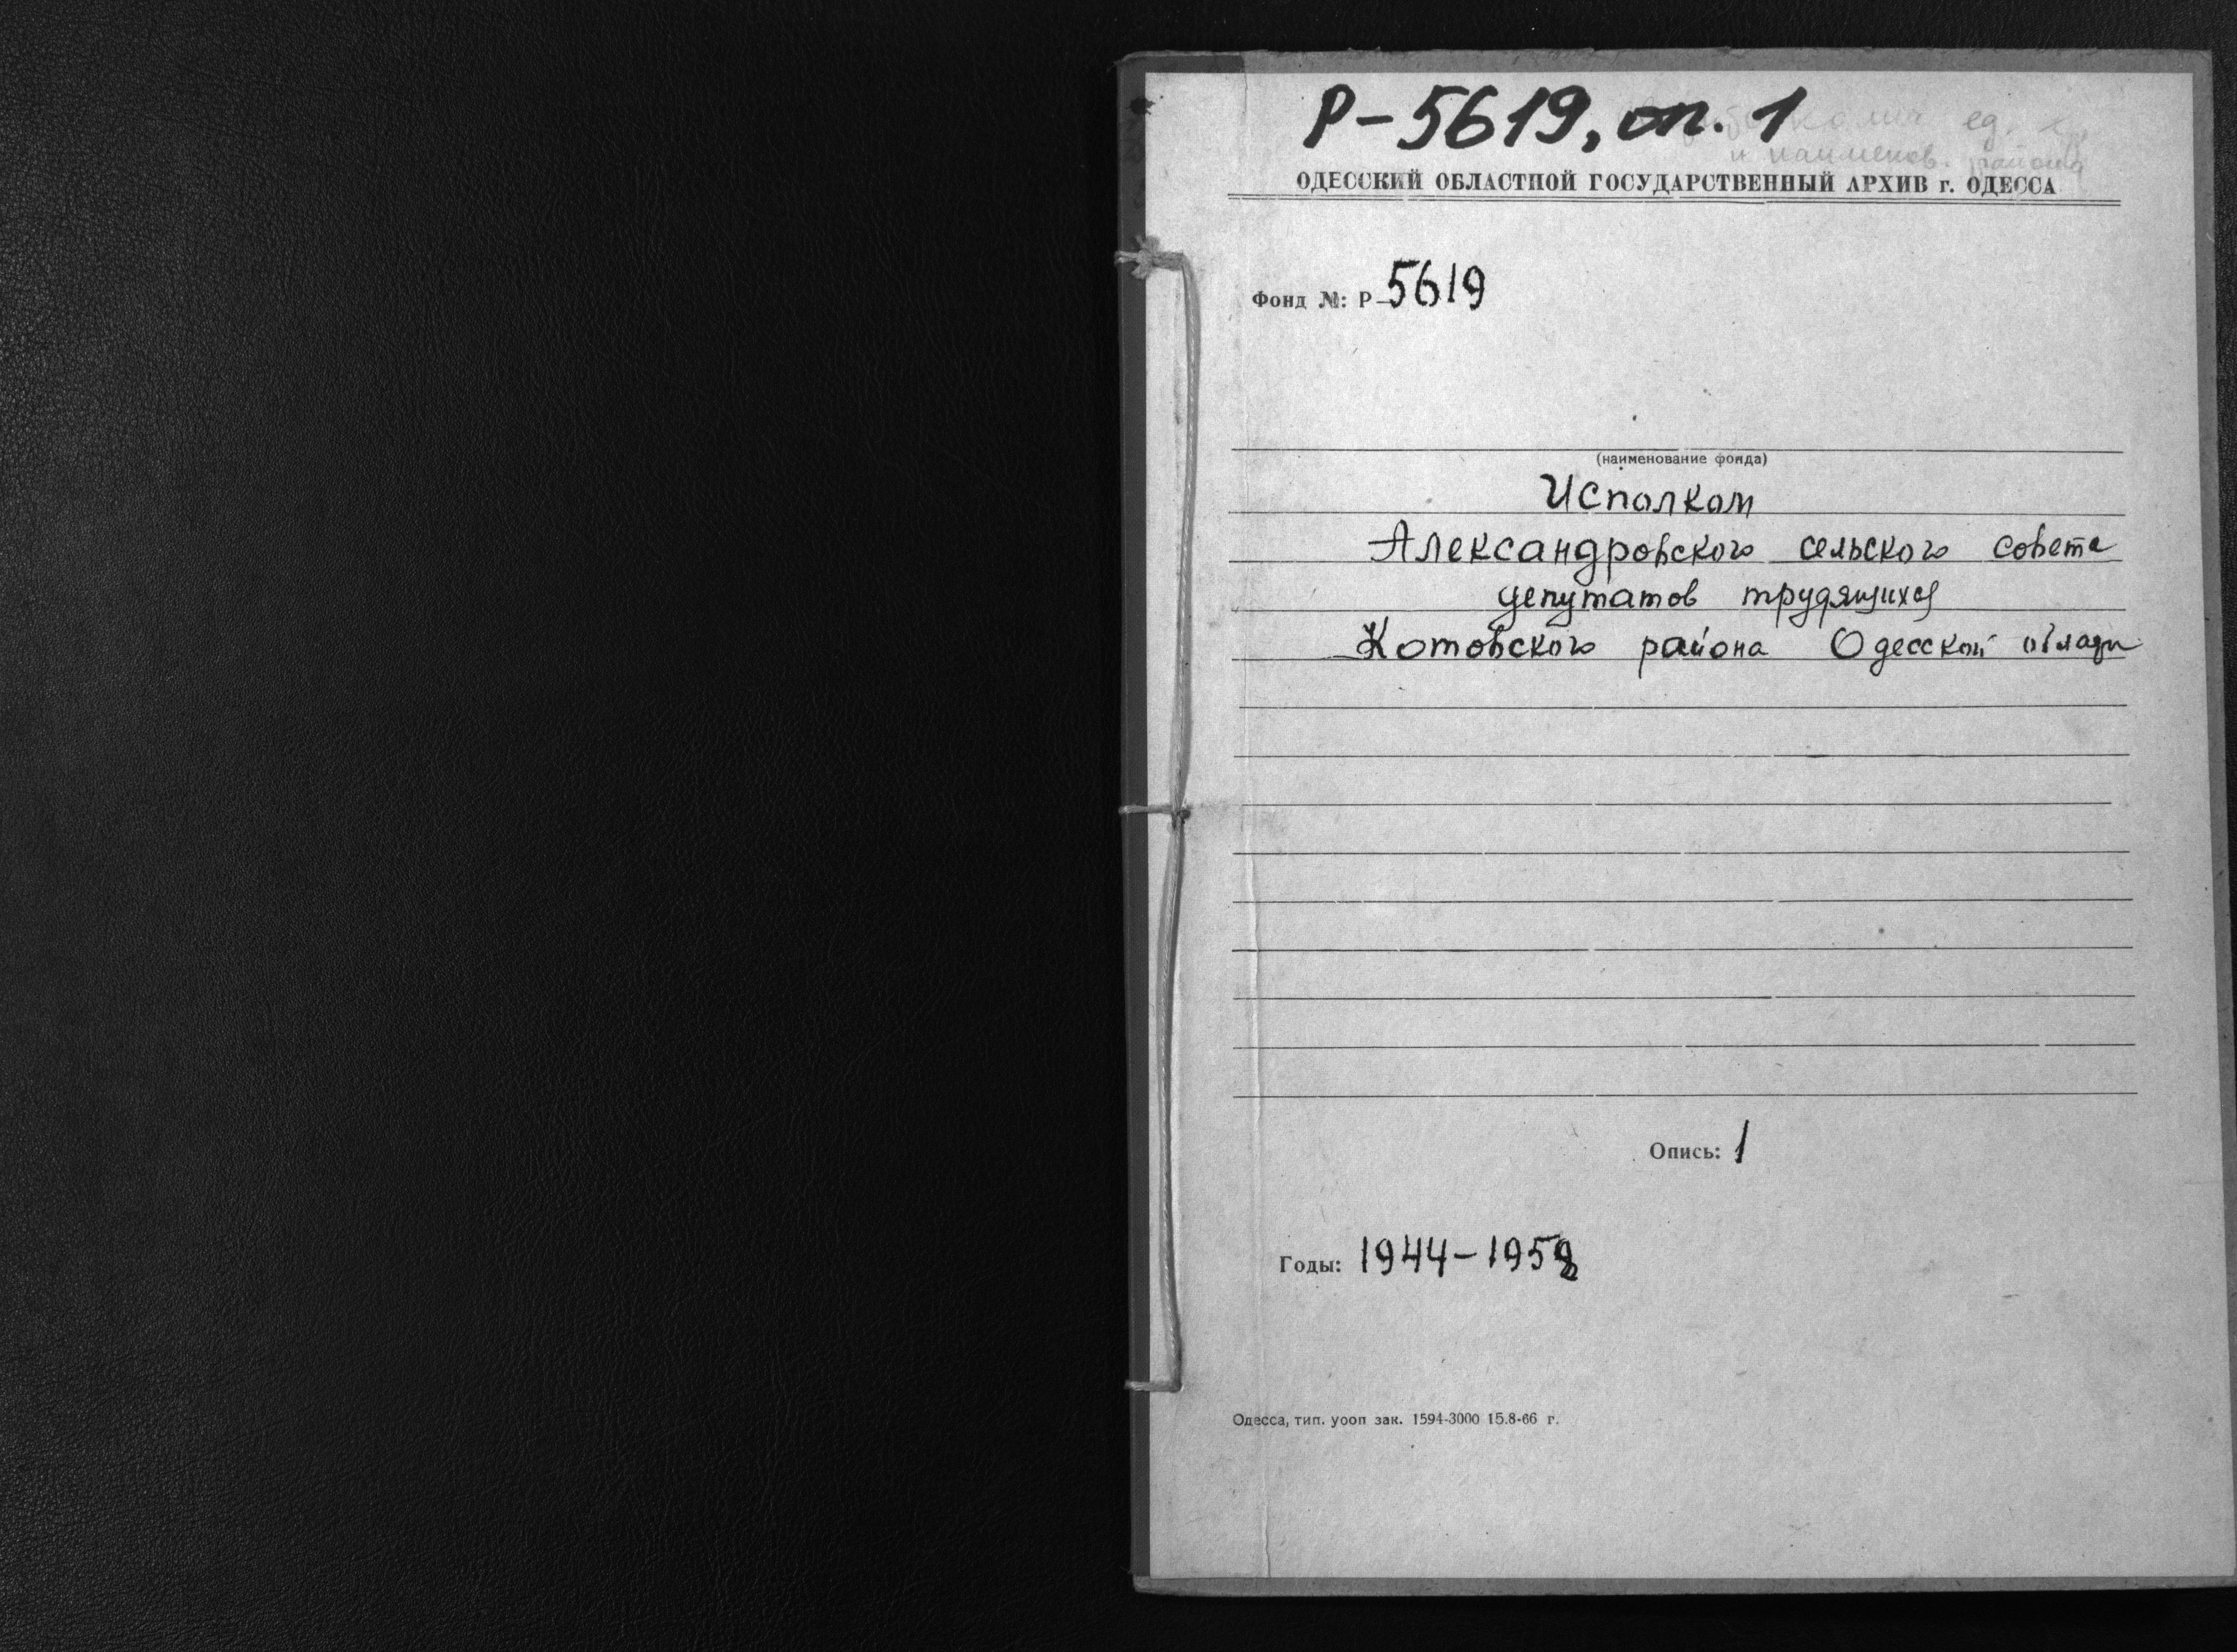 Р-5619, оп. 1
ед. х.
и наименов. района
ОДЕССКИЙ ОБЛАСТНОЙ ГОСУДАРСТВЕННЫЙ АРХИВ г. ОДЕССА
Фонд №: Р-5619
(наименование фонда)
Исполком
Александровского сельского совета
депутатов трудящихся
Котовского района Одесской
Опись: 1
Годы: 1944-195
Одесса, тип. уооп зак. 1594-3000 15.8-66 г.